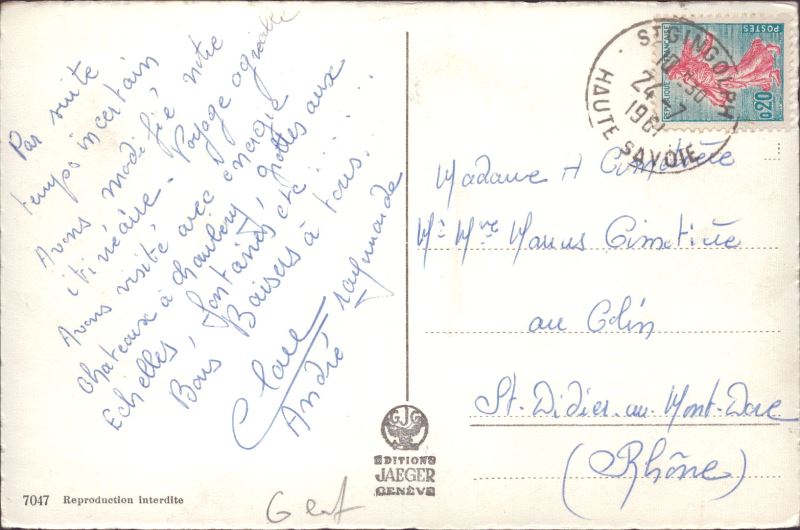 Par suite
temps incertain
Avons modifié notre
itinéraire. Voyage agréable
Avons visité avec énergie
châteaux à Chambéry, grottes aux
Echelles, fontaines etc......
Bons Baisers à tous.
Claire Raymonde
André
EDITIONS
JAEGER
GENÈVE
GJG
7047 Reproduction interdite
ST GINGOLPH
24-7
1961
HAUTE SAVOIE
REPUBLIQUE FRANÇAISE
POSTES
0,20
Madame A Cimetière
Mr Mme Marius Cimetière
au Colin
St. Didier-au-Mont-Dore
(Rhône)